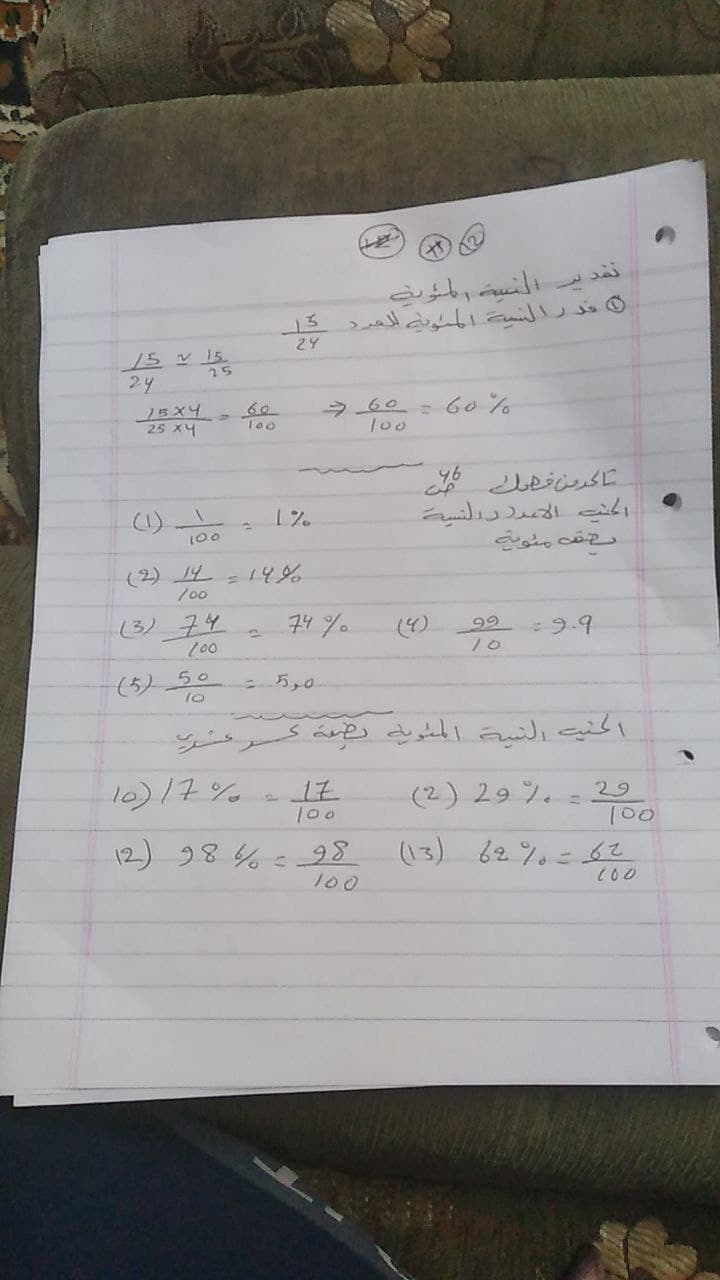 12
تقدير النسبة المئوية
① قدر النسبة المئوية للعدد 15/24
15/24 ≈ 15/25
15×4/25×4 = 60/100 ⇒ 60/100 = 60%
تأكد من فهمك ص 46
اكتب الأعداد النسبية
بصفة مئوية
(1) 1/100 = 1%
(2) 14/100 = 14%
(3) 74/100 = 74% (4) 99/10 = 9.9
(5) 50/10 = 5,0
اكتب النسبة المئوية بصيغة كسر عشري
10) 17% = 17/100 (2) 29% = 29/100
12) 98% = 98/100 (13) 62% = 62/100